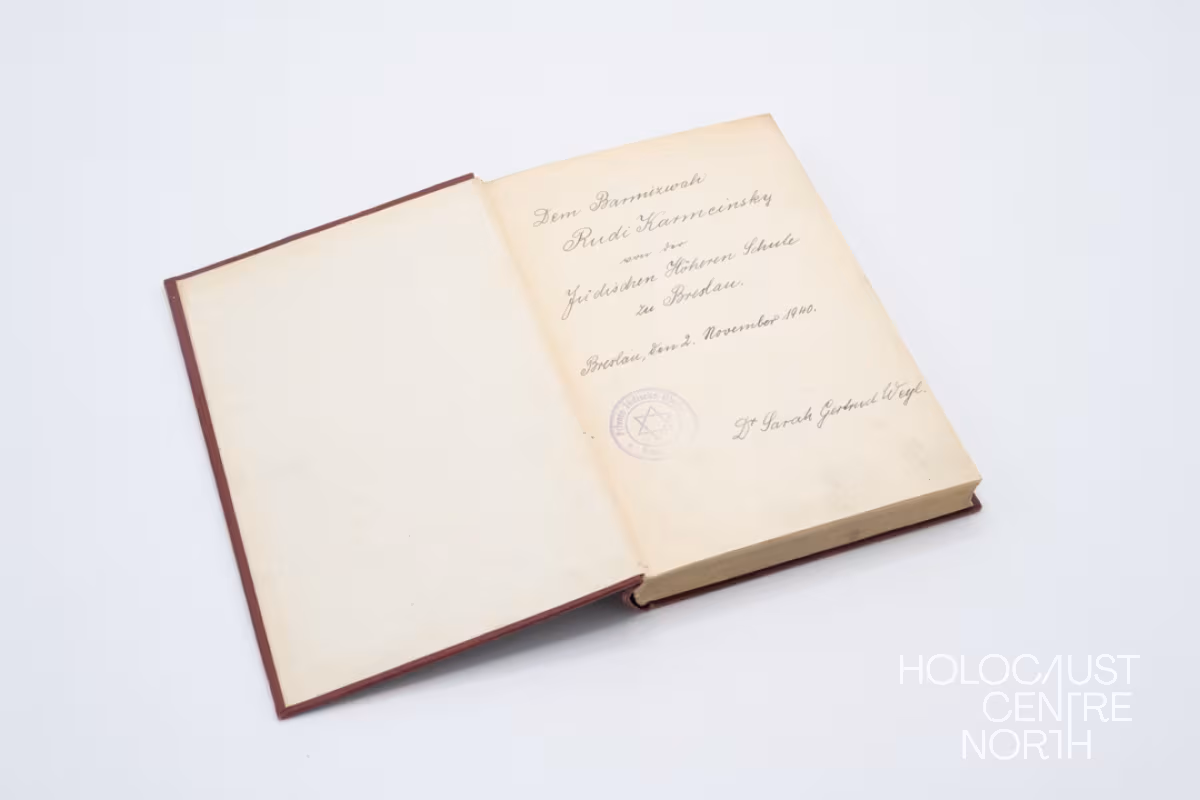 Dem Barmizwah
Rudi Karmeinsky
von der
Jüdischen Höheren Schule
zu Breslau.
Breslau, den 2. November 1940.
Dr Sarah Gertrud Weyl.
HOLOCAUST
CENTRE
NORTH